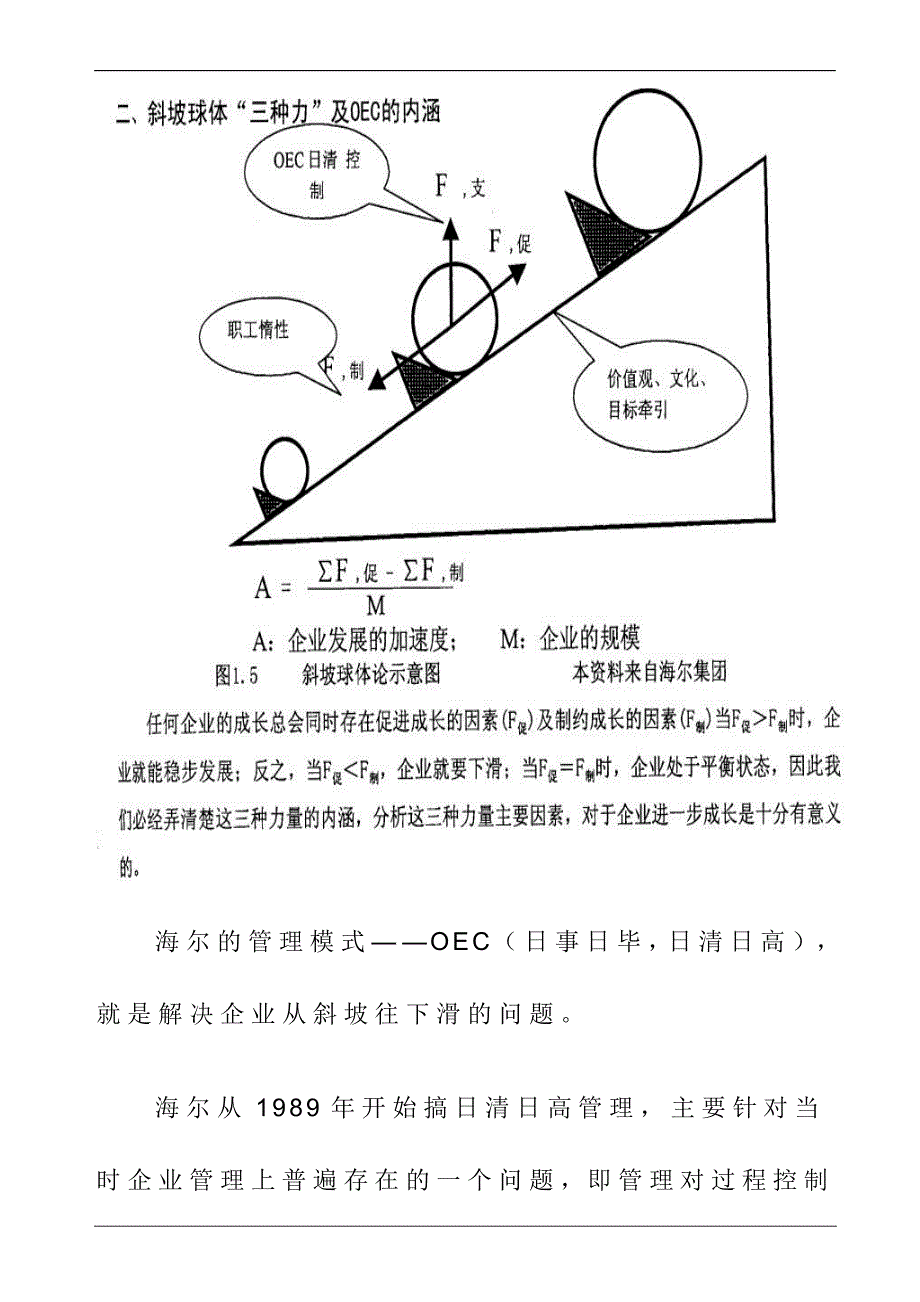 二、斜坡球体“三种力”及OEC的内涵
OEC日清 控
制
F ,支
F ,促
职工惰性
F ,制
价值观、文化、
目标牵引
A = ΣF ,促 - ΣF ,制
M
A：企业发展的加速度； M：企业的规模
图1.5 斜坡球体论示意图 本资料来自海尔集团
任何企业的成长总会同时存在促进成长的因素(F促)及制约成长的因素(F制)当F促>F制时，企
业就能稳步发展；反之，当F促<F制，企业就要下滑；当F促=F制时，企业处于平衡状态，因此我
们必经弄清楚这三种力量的内涵，分析这三种力量主要因素，对于企业进一步成长是十分有意义
的。
海尔的管理模式——OEC（日事日毕，日清日高），
就是解决企业从斜坡往下滑的问题。
海尔从 1989 年开始搞日清日高管理，主要针对当
时企业管理上普遍存在的一个问题，即管理对过程控制